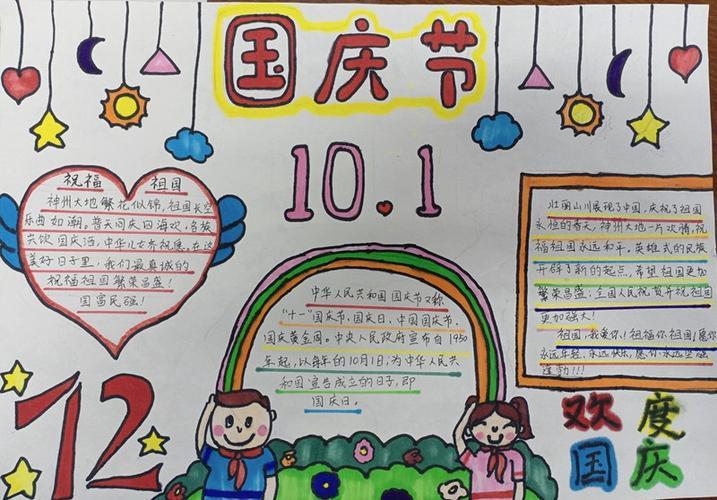 国庆节
10.1
祝福 祖国
神州大地繁花似锦,祖国长空
乐曲如潮。普天同庆四海欢,各族
共饮国庆酒,中华儿女齐祝愿,在这
美好日子里,我们最真诚的
祝福祖国繁荣昌盛!
国富民强!
中华人民共和国国庆节又称
"十一"国庆节、国庆日、中国国庆节、
国庆黄金周。中央人民政府宣布自1950
年起,以每年的10月1日,为中华人民共
和国宣告成立的日子,即
国庆日。
壮丽山川展现了中国,庆祝了祖国
永恒的春天,神州大地一片欢腾,祝
福祖国永远和平。英雄式的民族
开辟了新的起点,希望祖国更加
繁荣昌盛!全国人民祝贺并祝祖国
更加强大!
祖国,我爱你!祝福你祖国!愿你
永远年轻、永远快乐,愿你永远坚强
蓬勃!!!
72
欢度
国庆